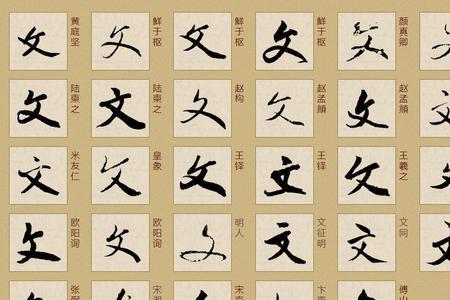 文 黄庭坚 文 鲜于枢 文 鲜于枢 文 鲜于枢 文 颜真卿 文
文 陆柬之 文 陆柬之 文 赵构 文 赵孟頫 文 赵孟頫 文
文 米友仁 文 皇象 文 王铎 文 王铎 文 王羲之 文
文 欧阳询 文 欧阳询 文 明人 文 文征明 文 文同 文